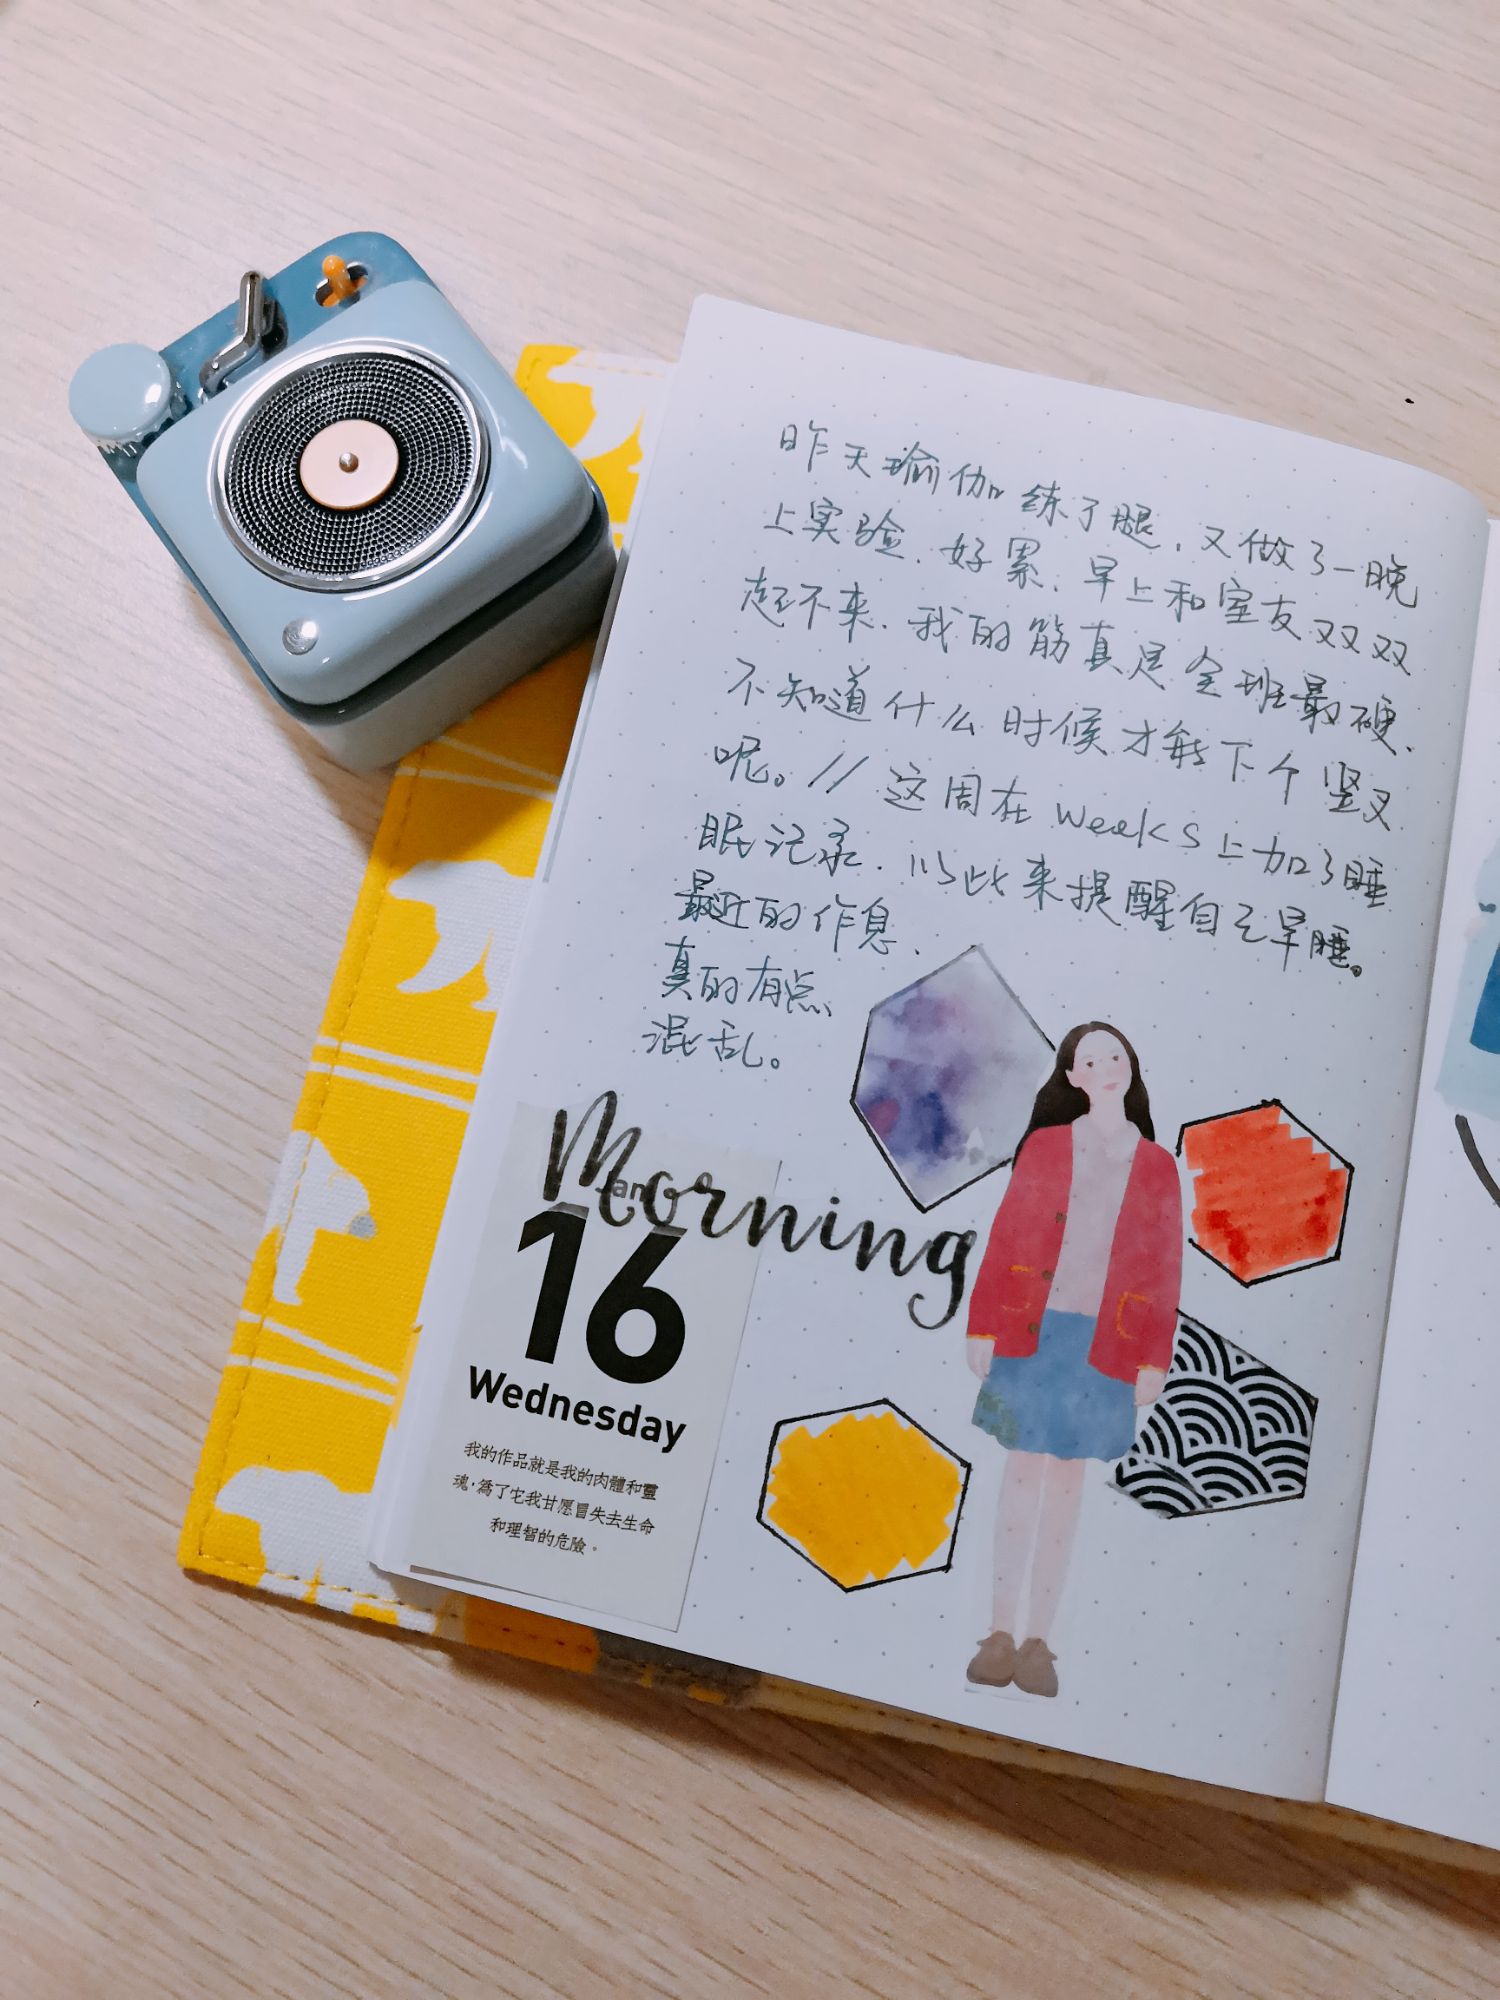 昨天瑜伽练了腿,又做了一晚
上实验,好累,早上和室友双双
起不来,我的筋真是全班最硬,
不知道什么时候才能下个竖叉
呢。//这周在weeks上加了睡
眠记录,以此来提醒自己早睡。
最近的作息,
真的有点
混乱。
Morning
Jan
16
Wednesday
我的作品就是我的肉體和靈
魂,為了它我甘愿冒失去生命
和理智的危險。